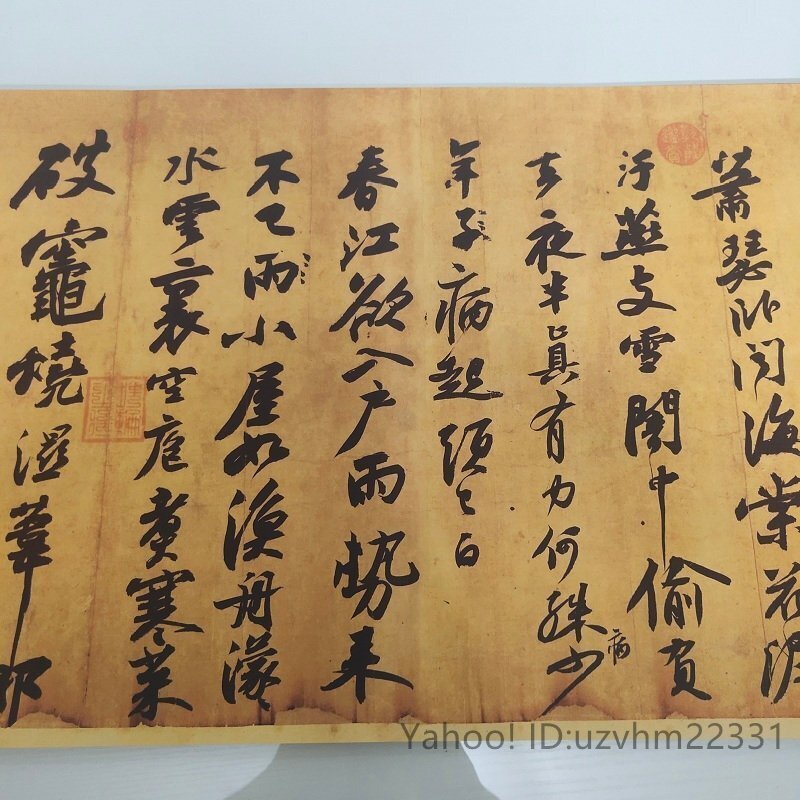 蕭瑟卧聞海棠花泥
汙燕支雪闇中偷負
去夜半真有力何殊少
病
年子病起頭已白
春江欲入戶雨勢來
不已雨小屋如漁舟濛〻
水雲裏空庖煮寒菜
破竈燒濕葦那
Yahoo! ID:uzvhm22331